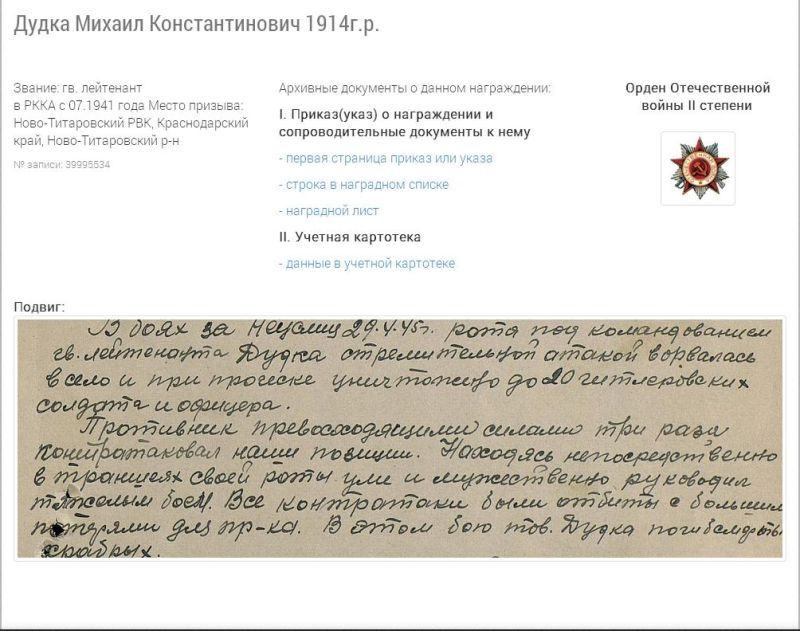 Дудка Михаил Константинович 1914г.р.
Звание: гв. лейтенант
в РККА с 07.1941 года Место призыва:
Ново-Титаровский РВК, Краснодарский
край, Ново-Титаровский р-н
№ записи: 39995534
Архивные документы о данном награждении:
I. Приказ(указ) о награждении и
сопроводительные документы к нему
- первая страница приказ или указа
- строка в наградном списке
- наградной лист
II. Учетная картотека
- данные в учетной картотеке
Орден Отечественной
войны II степени
Подвиг:
В боях за 29.4.45г. рота под командованием
гв. лейтенанта Дудка стремительной атакой ворвалась
в село и при уничтожено до 20 гитлеровских
солдата и офицера.
Противник превосходящими силами три раза
контратаковал наши позиции. Находясь непосредственно
в траншеях своей роты и мужественно руководил
тяжелым боем. Все контратаки были отбиты с большим
потерями для пр-ка. В этом бою тов. Дудка погиб
храбрых.